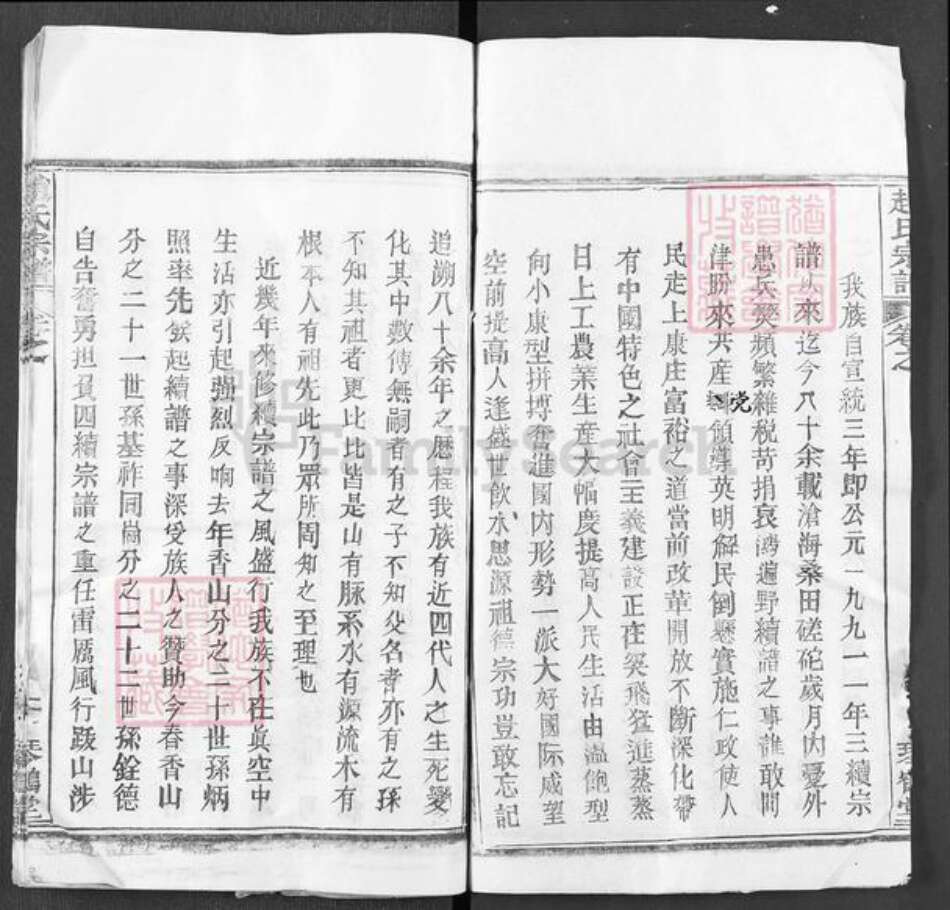 趙氏宗譜
卷之
琴鶴堂
我族自宣統三年即公元一九九一一年三續宗
譜以來迄今八十余載滄海桑田磋砣歲月内憂外
患兵燹頻繁雜税苛捐哀鴻遍野續譜之事誰敢問
津盼來共産党領導英明解民倒懸實施仁政使人
民走上康庄富裕之道當前改革開放不斷深化帶
有中國特色之社會主義建設正在突飛猛進蒸蒸
日上工農業生産大幅度提高人民生活由温飽型
向小康型拼搏奮進國内形勢一派大好國际威望
空前提高人逢盛世飲水思源祖德宗功豈敢忘記
追溯八十余年之歷程我族有近四代人之生死變
化其中數傳無嗣者有之子不知父名者亦有之孫
不知其祖者更比比皆是山有脈系水有源流木有
根本人有祖先此乃眾所周知之至理也
近幾年來修續宗譜之風盛行我族不在真空中
生活亦引起强烈反响去年香山分之二十世孫炳
照率先發起續譜之事深受族人之贊助今春香山
分之二十一世孫基祚同崗分之二十二世孫銓德
自告奮勇担負四續宗譜之重任雷厲風行跋山涉
趙氏宗譜
卷之
琴鶴堂
FamilySearch